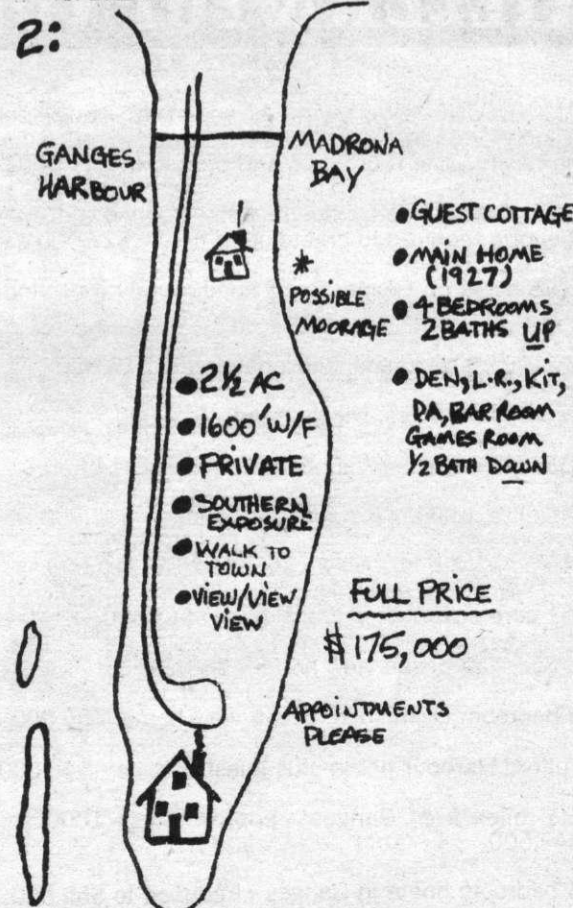 2:
GANGES
HARBOUR
MADRONA
BAY
*
POSSIBLE
MOORAGE
• GUEST COTTAGE
• MAIN HOME
(1927)
• 4 BEDROOMS
2 BATHS UP
• DEN, L.R., KIT,
DA, BAR ROOM
GAMES ROOM
1/2 BATH DOWN
• 2 1/2 AC
• 1600' W/F
• PRIVATE
• SOUTHERN
EXPOSURE
• WALK TO
TOWN
• VIEW/VIEW
VIEW
FULL PRICE
$175,000
APPOINTMENTS
PLEASE